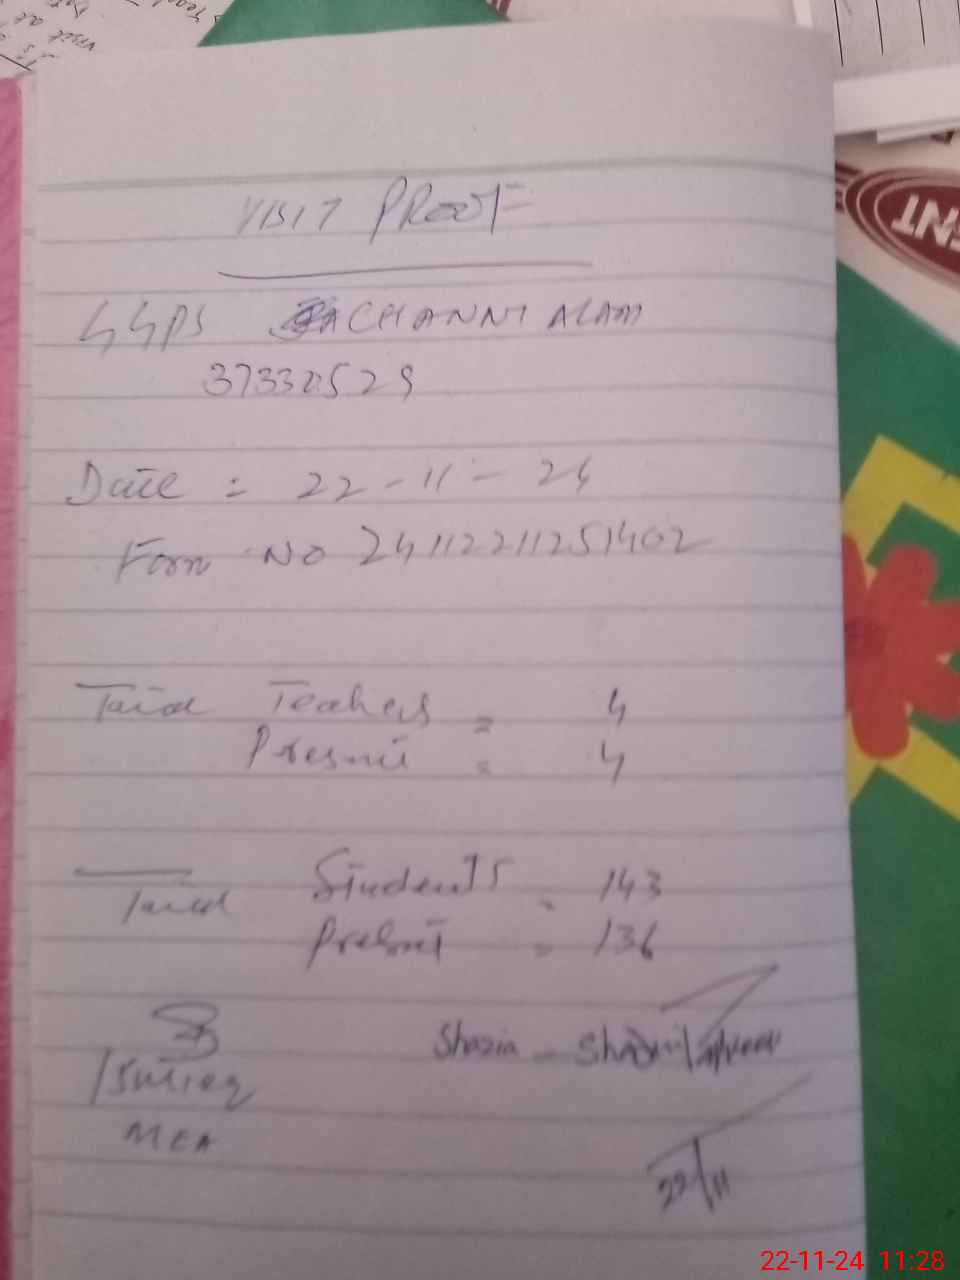 VISIT PROOF
GGPS CHANNI ALAM
37330529
Date = 22-11-24
Form No 24112211251402
Total Teachers = 4
Present = 4
Total Students = 143
Present = 136
Shazia
Ishtiaq
MEA
22/11
ENT
visit at
22-11-24 11:28